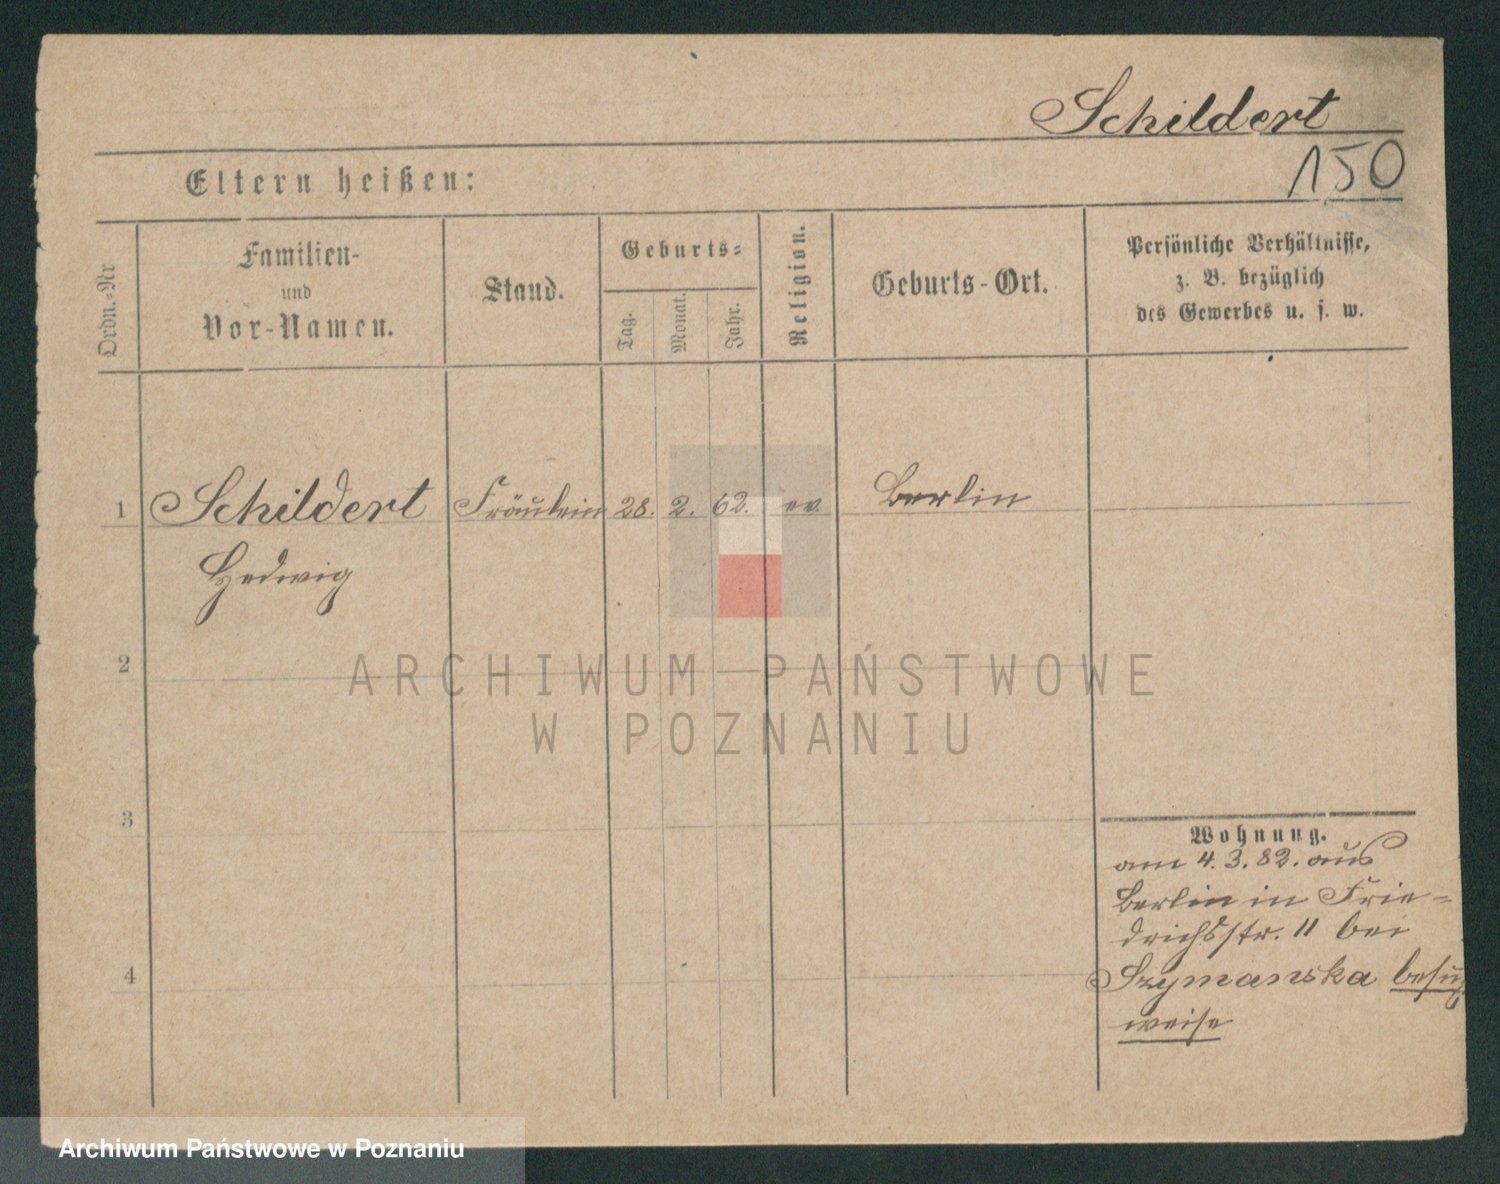 Schildert
150
Eltern heißen:
Ordn.-Nr
Familien-
und
Vor-Namen.
Stand.
Geburts-
Tag.
Monat.
Jahr.
Religion.
Geburts-Ort.
Persönliche Verhältnisse,
z. B. bezüglich
des Gewerbes u. s. w.
1 Schildert Fräulein 28. 2. 62. ev. Berlin
Hedwig
2
ARCHIWUM PAŃSTWOWE
W POZNANIU
3
Wohnung.
am 4.3.82. aus
Berlin in Frie=
drichsstr. 11 bei
4
Szymanska besuchs
weise
Archiwum Państwowe w Poznaniu